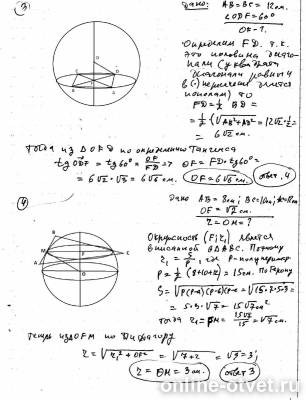 ③
Дано: AB=BC=12см.
∠ODF=60°
OF-?
Определим FD. т.к.
это половина диаго-
нали (у квадрата
диагонали равны и
в (·) пересечения делятся
пополам) то
FD=½ BD=
=½(√AB²+AD²=12√2·½=
=6√2 см.
Тогда из △OFD по определению тангенса
tg ODF=tg60°=OF/FD => OF=FD·tg60°=
=6√2·√3=6√6 см. OF=6√6 см. ответ. 4
④
Дано AB=8см; BC=10см;
OF=√2 см.
r=OM=?
Окружность (F; r₁) является
вписанной в △ABC. Поэтому
r₁=S/P, где P-полупериметр
P=½(8+10+12)=15см. По Герону
S=√P(P-a)(P-b)(P-c)=√15·7·5·3=
=5·3·√7=15√7 см²
тогда r₁=FM=15√7/15=√7 см.
Теперь из △OFM по Пифагору
r=√r₁²+OF²=√7+2=√9=3;
r=OM=3см. ответ 3
online-otvet.ru